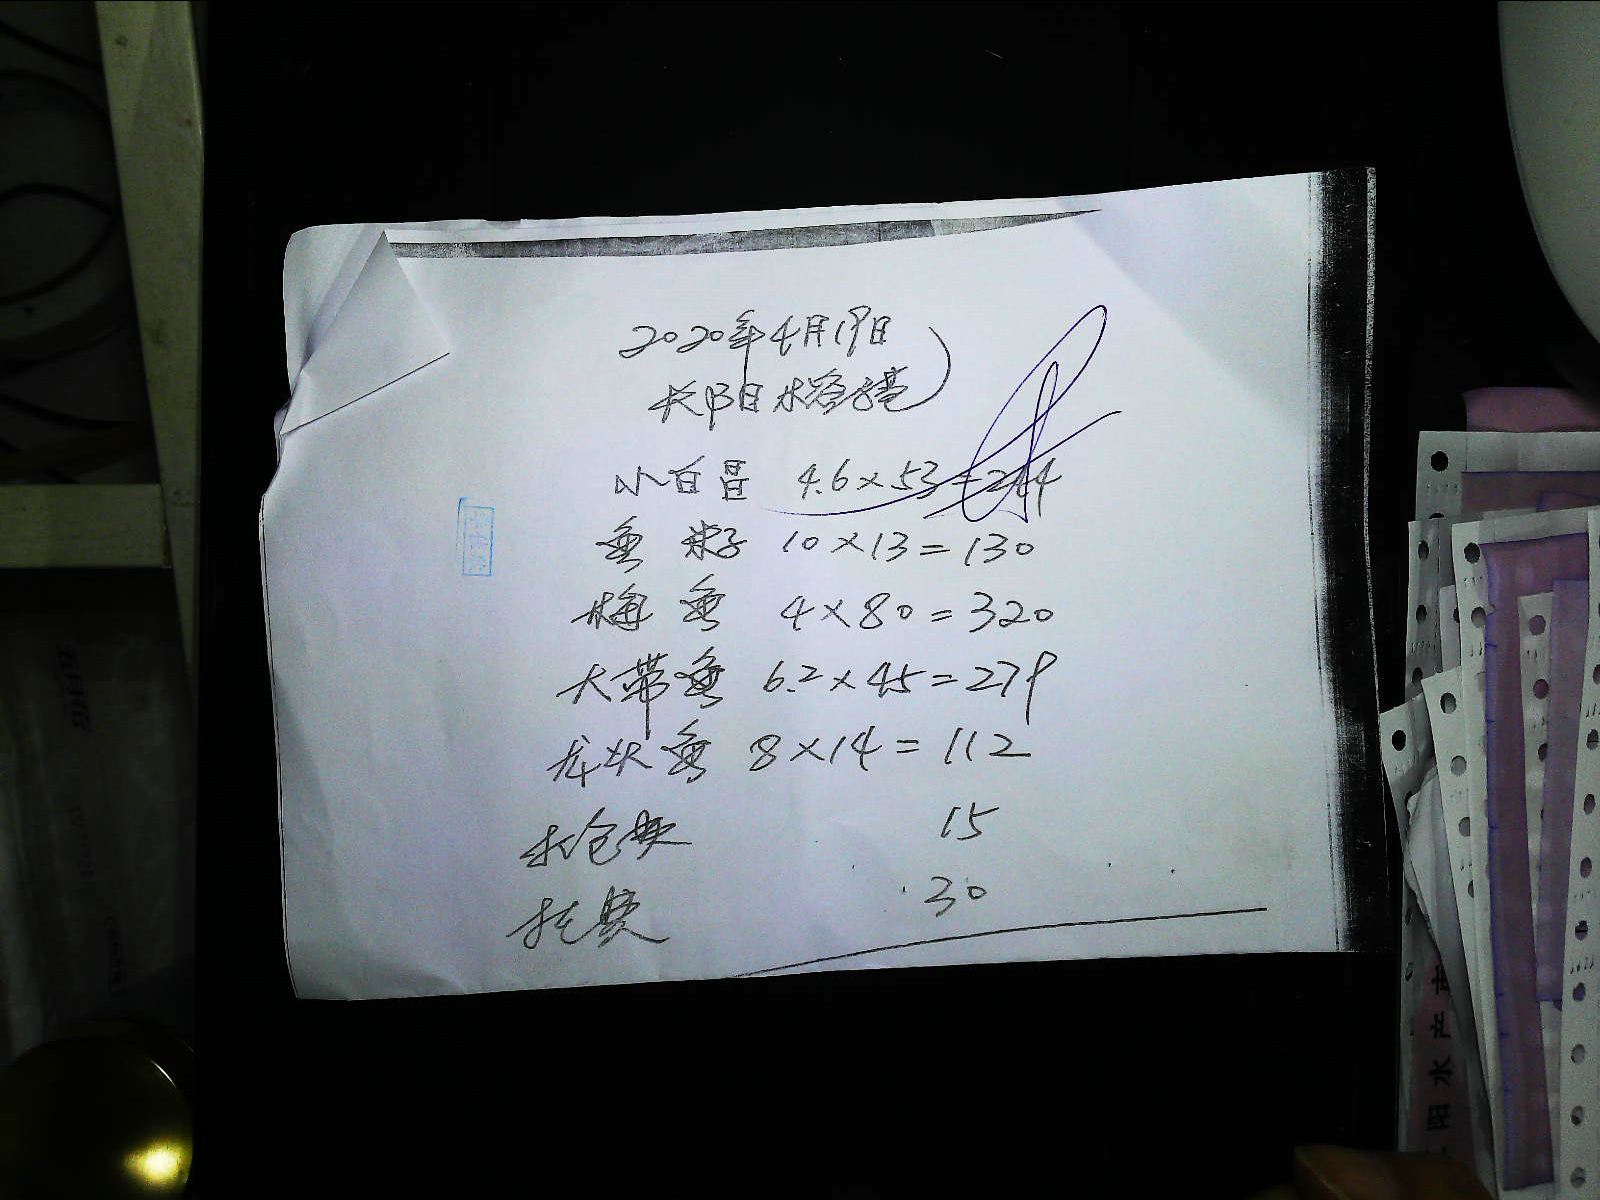 2020年4月19日
长阳水
小白昌 4.6×53=244
鱼籽 10×13=130
梅鱼 4×80=320
大带鱼 6.2×45=279
龙头鱼 8×14=112
打包费 15
托费 30
水
阳